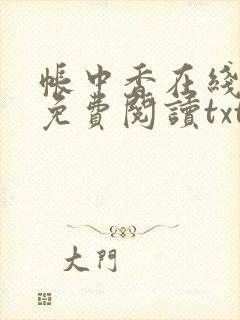 帳中香在綫
免費閱讀txt
大門